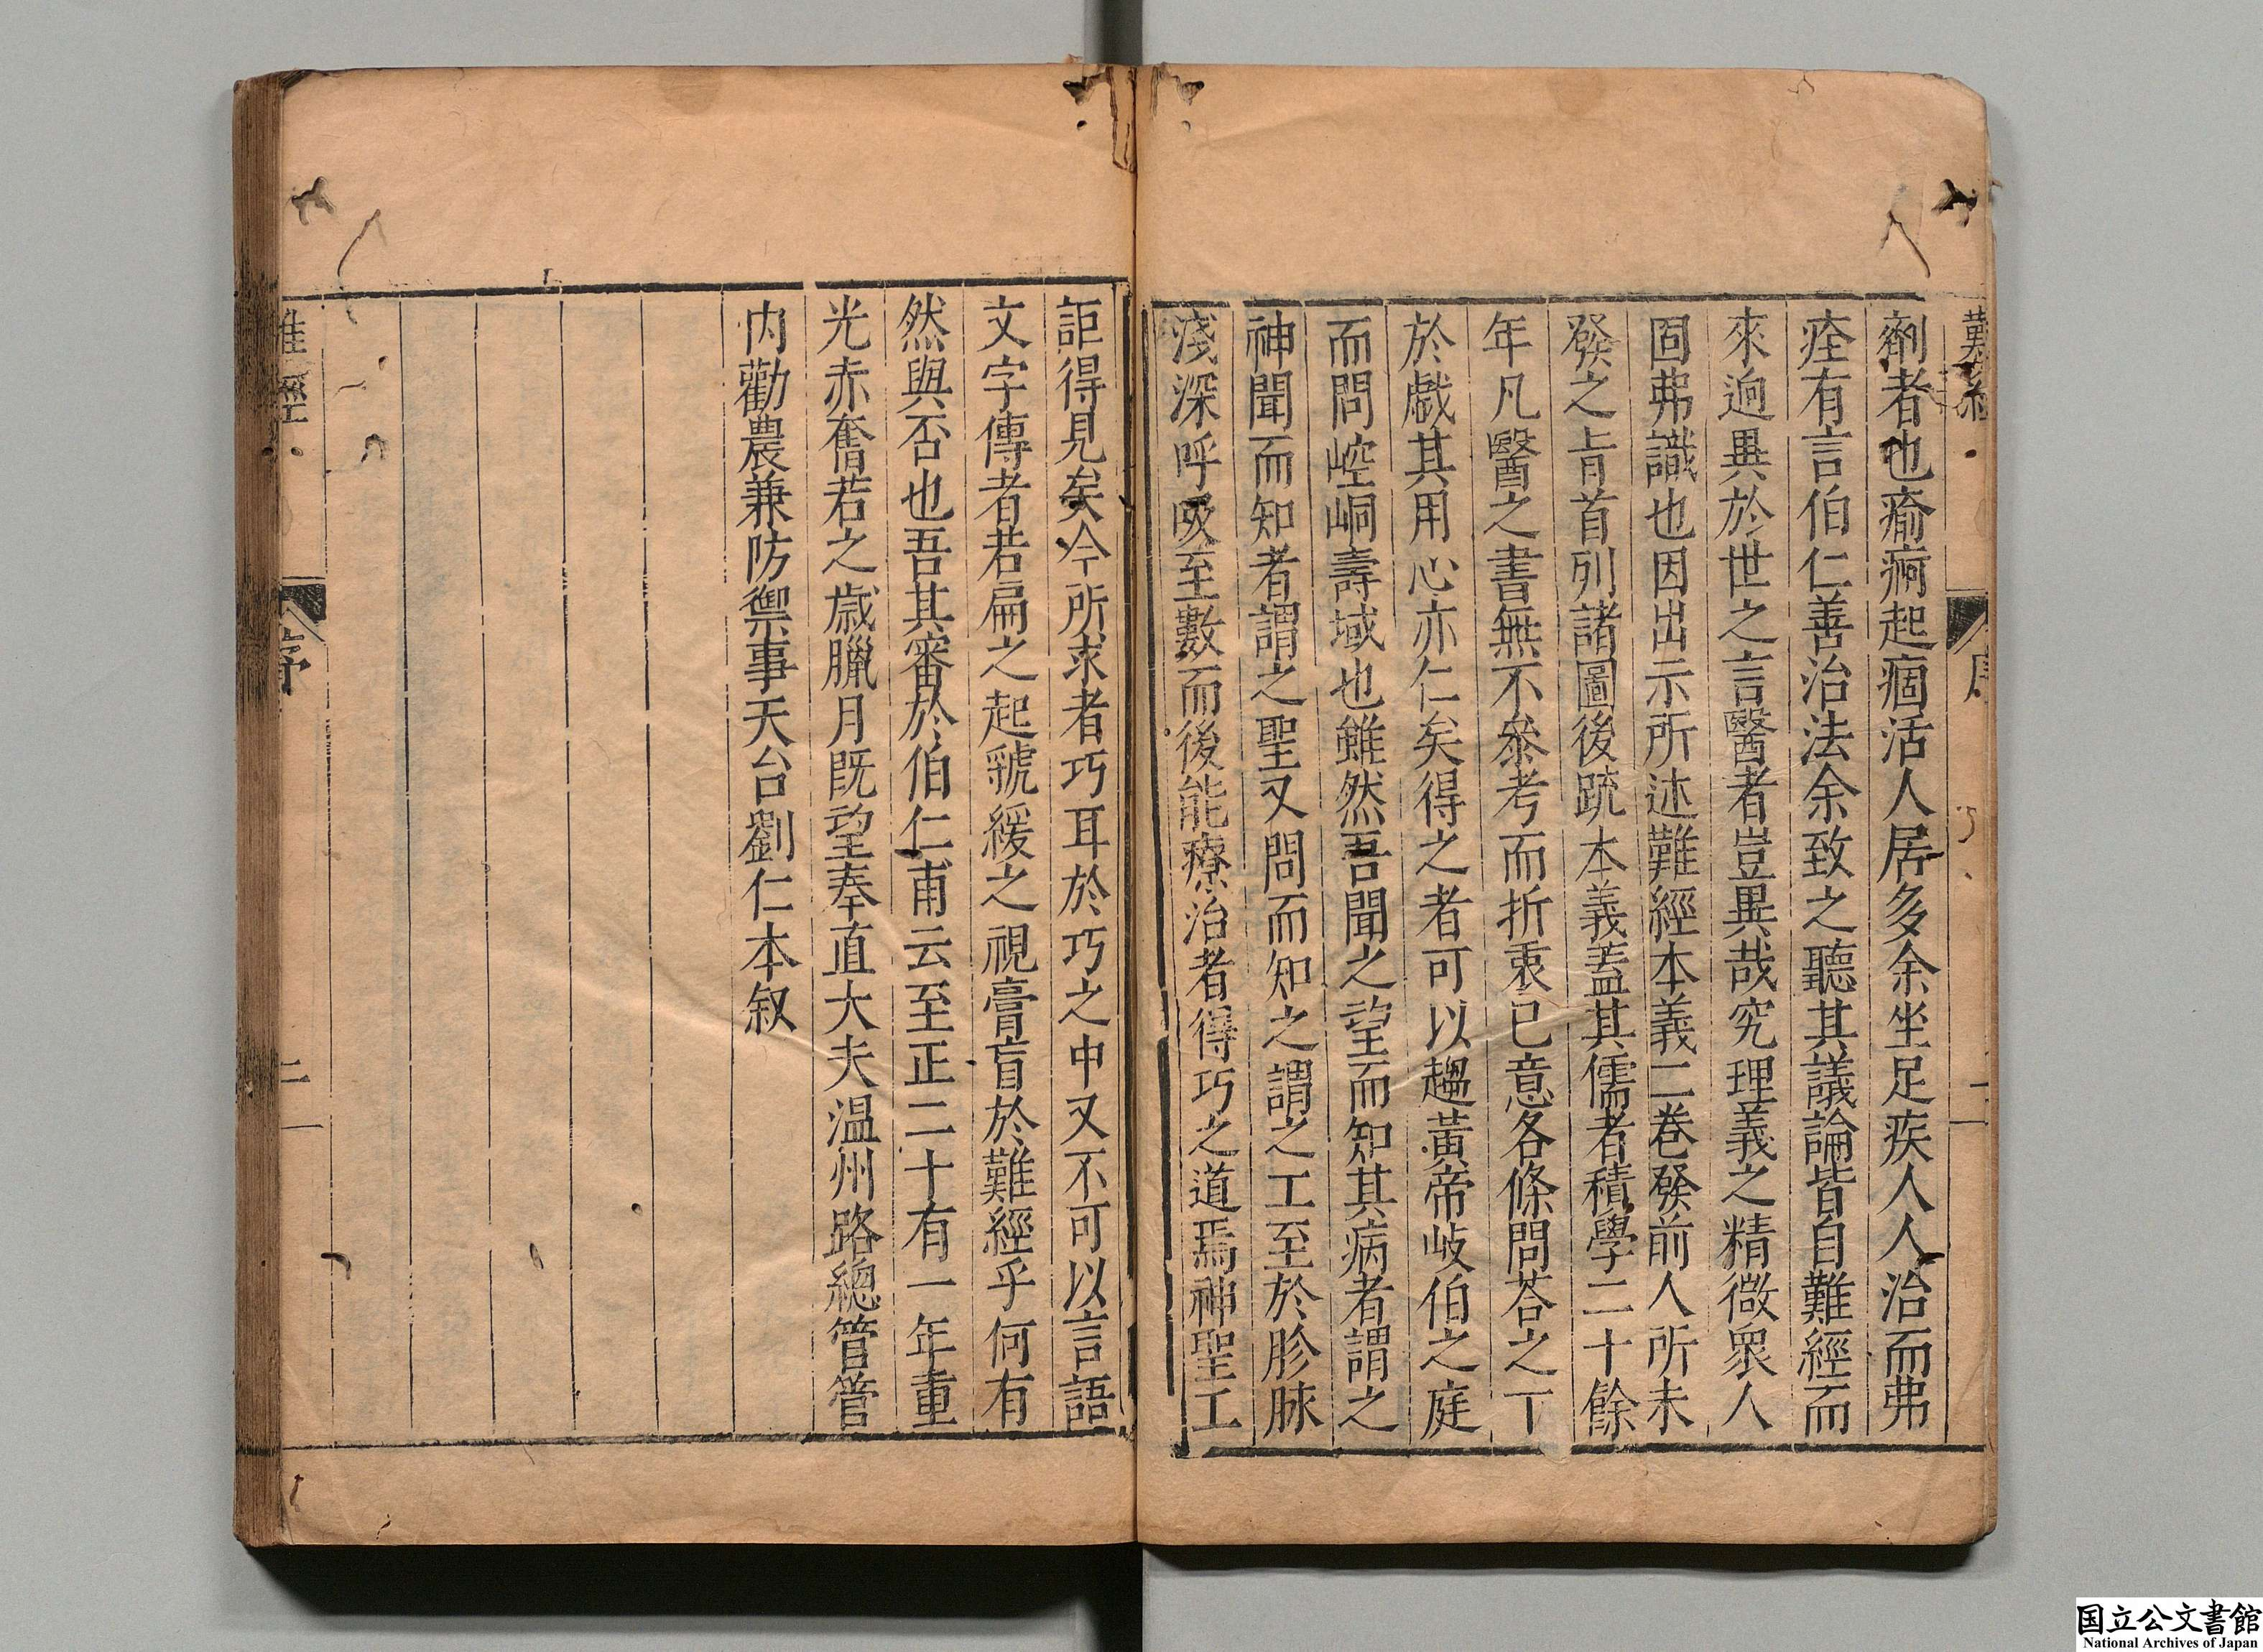 難經
序
二
劑者也瘉痾起痼活人居多余坐足疾人人治而弗
痊有言伯仁善治法余致之聽其議論皆自難經而
來逈異於世之言醫者豈異哉究理義之精微衆人
固弗識也因出示所述難經本義二卷發前人所未
發之旨首列諸圖後䟽本義蓋其儒者積學二十餘
年凡醫之書無不叅考而折衷已意各條問荅之下
於戲其用心亦仁矣得之者可以趨黃帝岐伯之庭
而問崆峒壽域也雖然吾聞之望而知其病者謂之
神聞而知者謂之聖又問而知之謂之工至於胗脉
淺深呼吸至數而後能療治者得巧之道焉神聖工
詎得見矣今所求者巧耳於巧之中又不可以言語
文字傳者若扁之起虢緩之視膏肓於難經乎何有
然與否也吾其審於伯仁甫云至正二十有一年重
光赤奮若之歲臘月既望奉直大夫溫州路總管管
内勸農兼防禦事天台劉仁本叙
難經
序
二
国立公文書館
National Archives of Japan